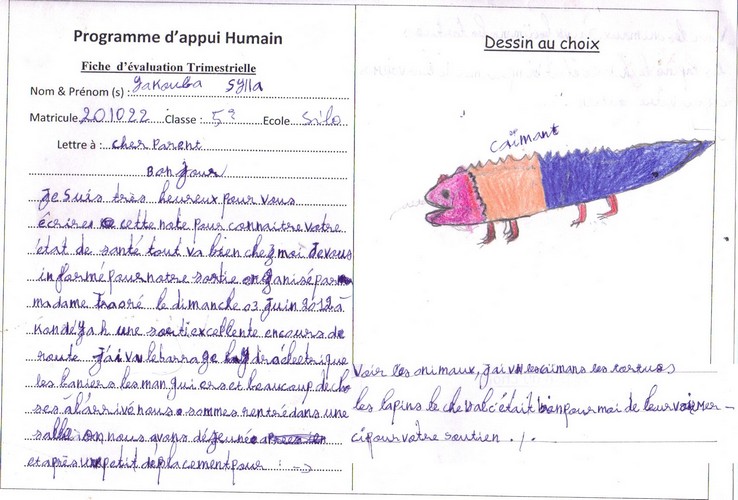 Programme d'appui Humain
Fiche d'évaluation Trimestrielle
Nom & Prénom (s) : Yakouba Sylla
Matricule 201022 Classe : 5e Ecole Silo
Lettre à : cher Parent
Bonjour
Je suis très heureux pour vous
écrires cette note pour connaitre votre
état de santé tout va bien chez moi Je vous
informé pour notre sortie organisé par
madame Traoré le dimanche 03 Juin 2012 à
Kondéya h une sorti excellente en cours de
route J'ai vu le barrage hydroélectrique
les baniers les manguiers et beaucoup de cho
ses à l'arrivé nous sommes rentré dans une
salle on nous avons déjeuné
et après un petit deplacement pour :
Dessin au choix
caimant
Voir les animaux, j'ai vu les caimans les tortues
les lapins le cheval c'était bon pour moi de leur voir Mer-
ci pour votre soutien ./.